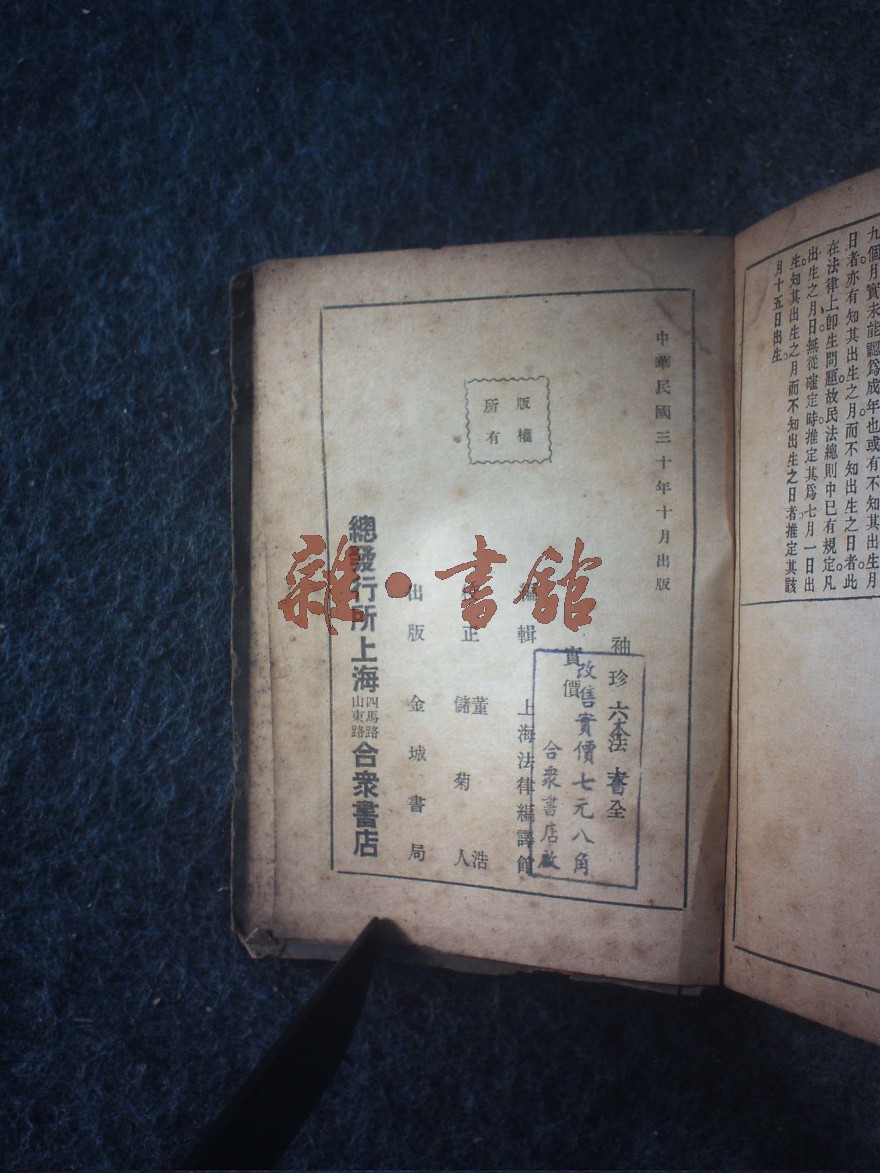 九個月實未能認爲成年也或有不知其出生月
日者亦有知其出生之月而不知出生之日者此
在法律上卽生問題故民法總則中已有規定凡
出生之月日無從確定時推定其爲七月一日出
生。知其出生之月而不知出生之日者推定其該
月十五日出生。
中華民國三十年十月出版
版權
所有
袖珍六法全書
實價
改售實價七元八角
合衆書店啟
編輯 上海法律編譯館
正 董浩
儲菊人
出版 金城書局
總發行所上海四馬路山東路合衆書店
雜·書館